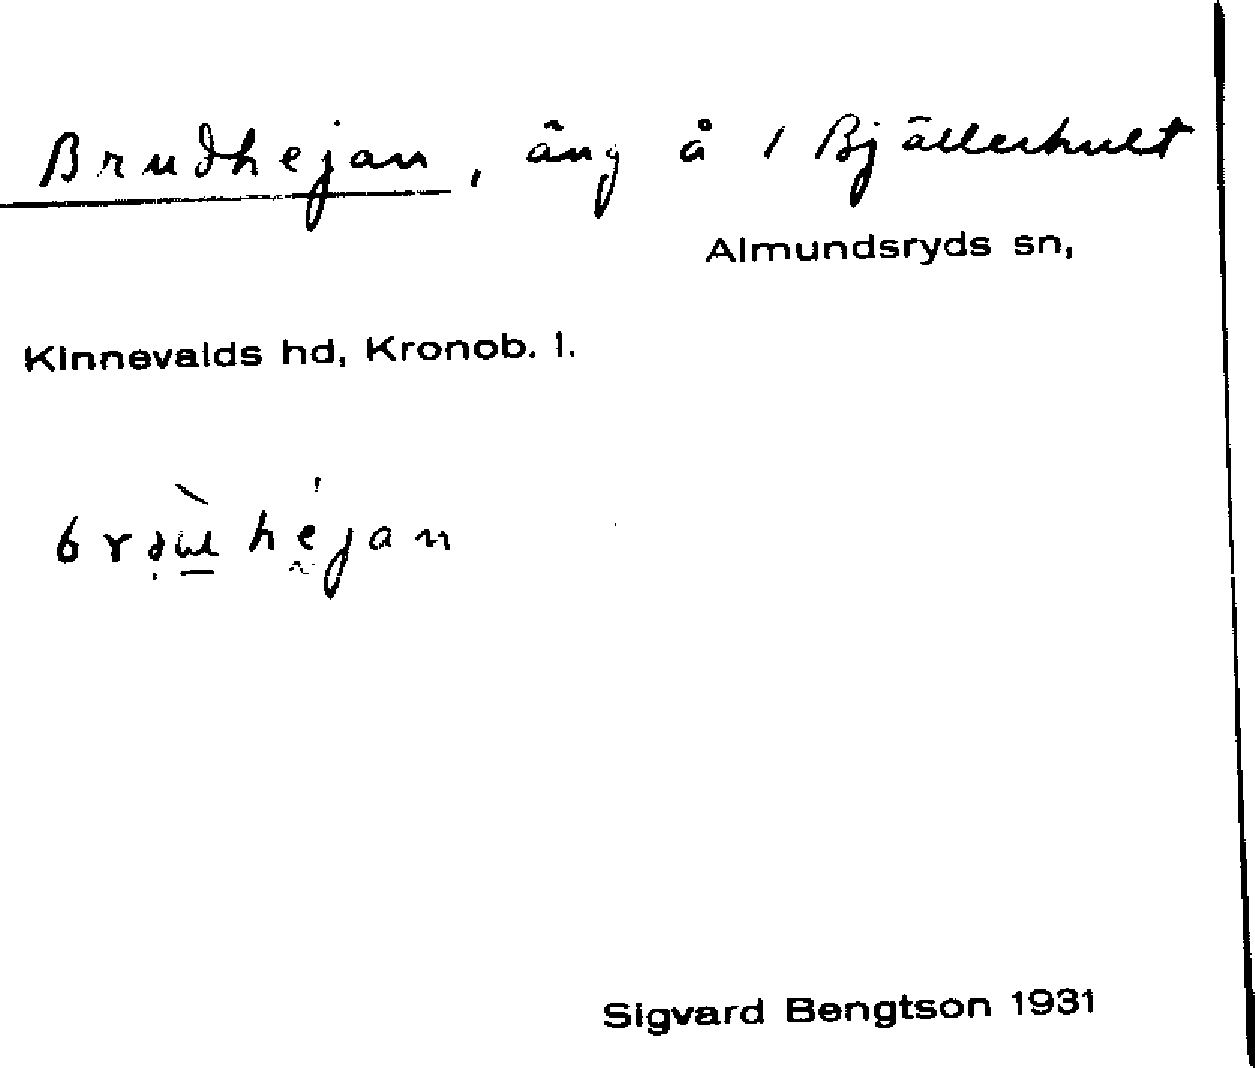 Brudhejan, äng å 1 Bjällerhult
Almundsryds sn,
Kinnevalds hd, Kronob. l.
Sigvard Bengtson 1931